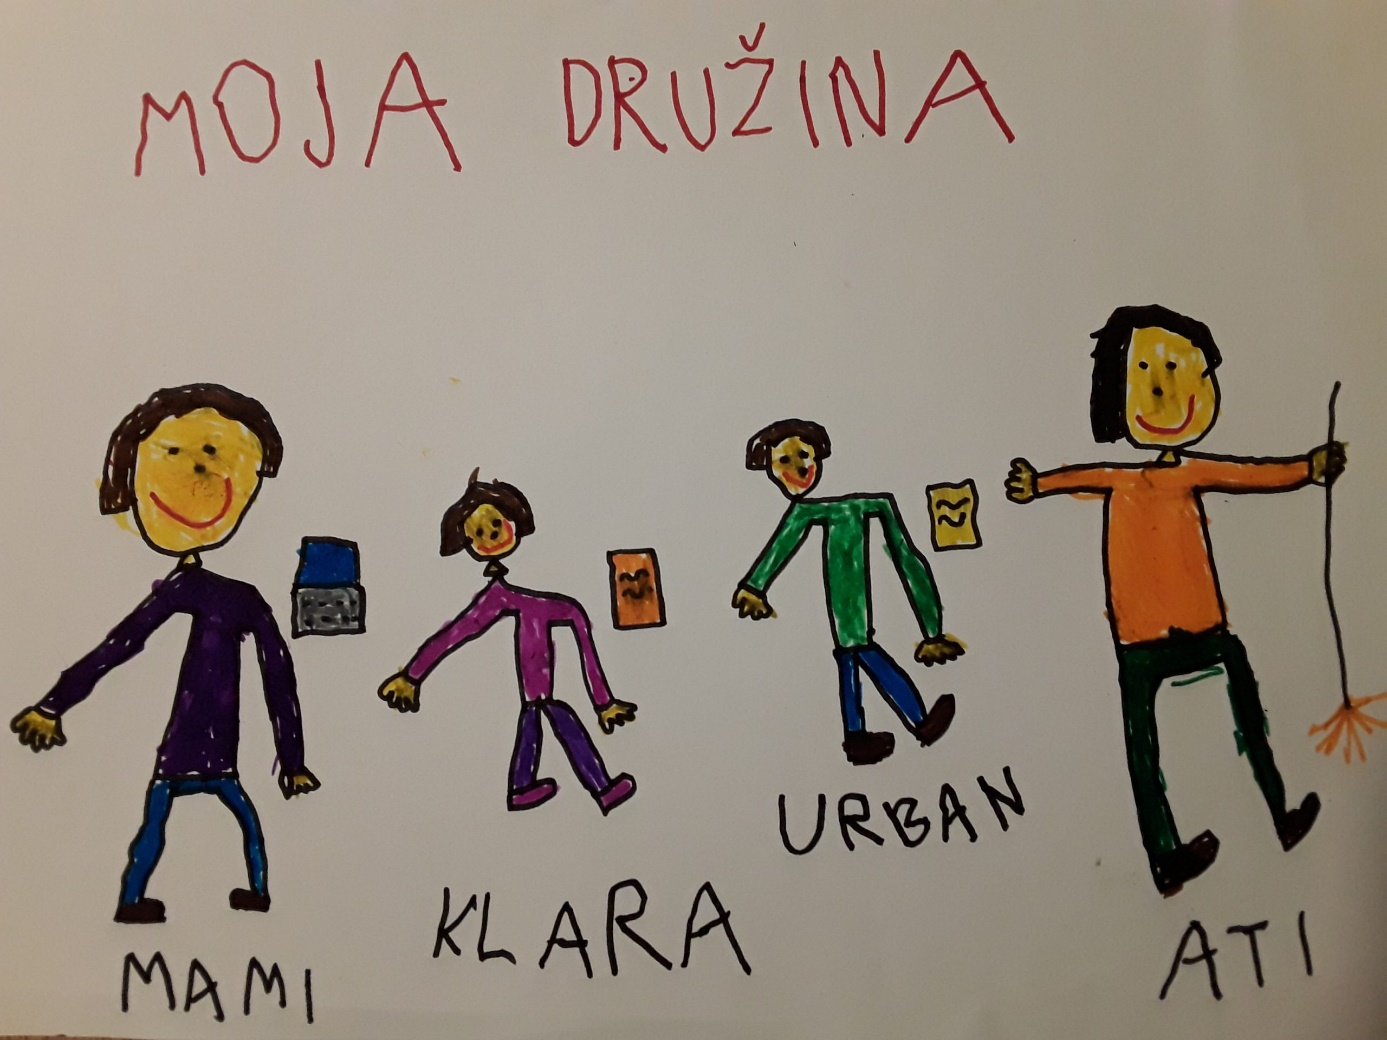 MOJA DRUŽINA
MAMI
KLARA
URBAN
ATI